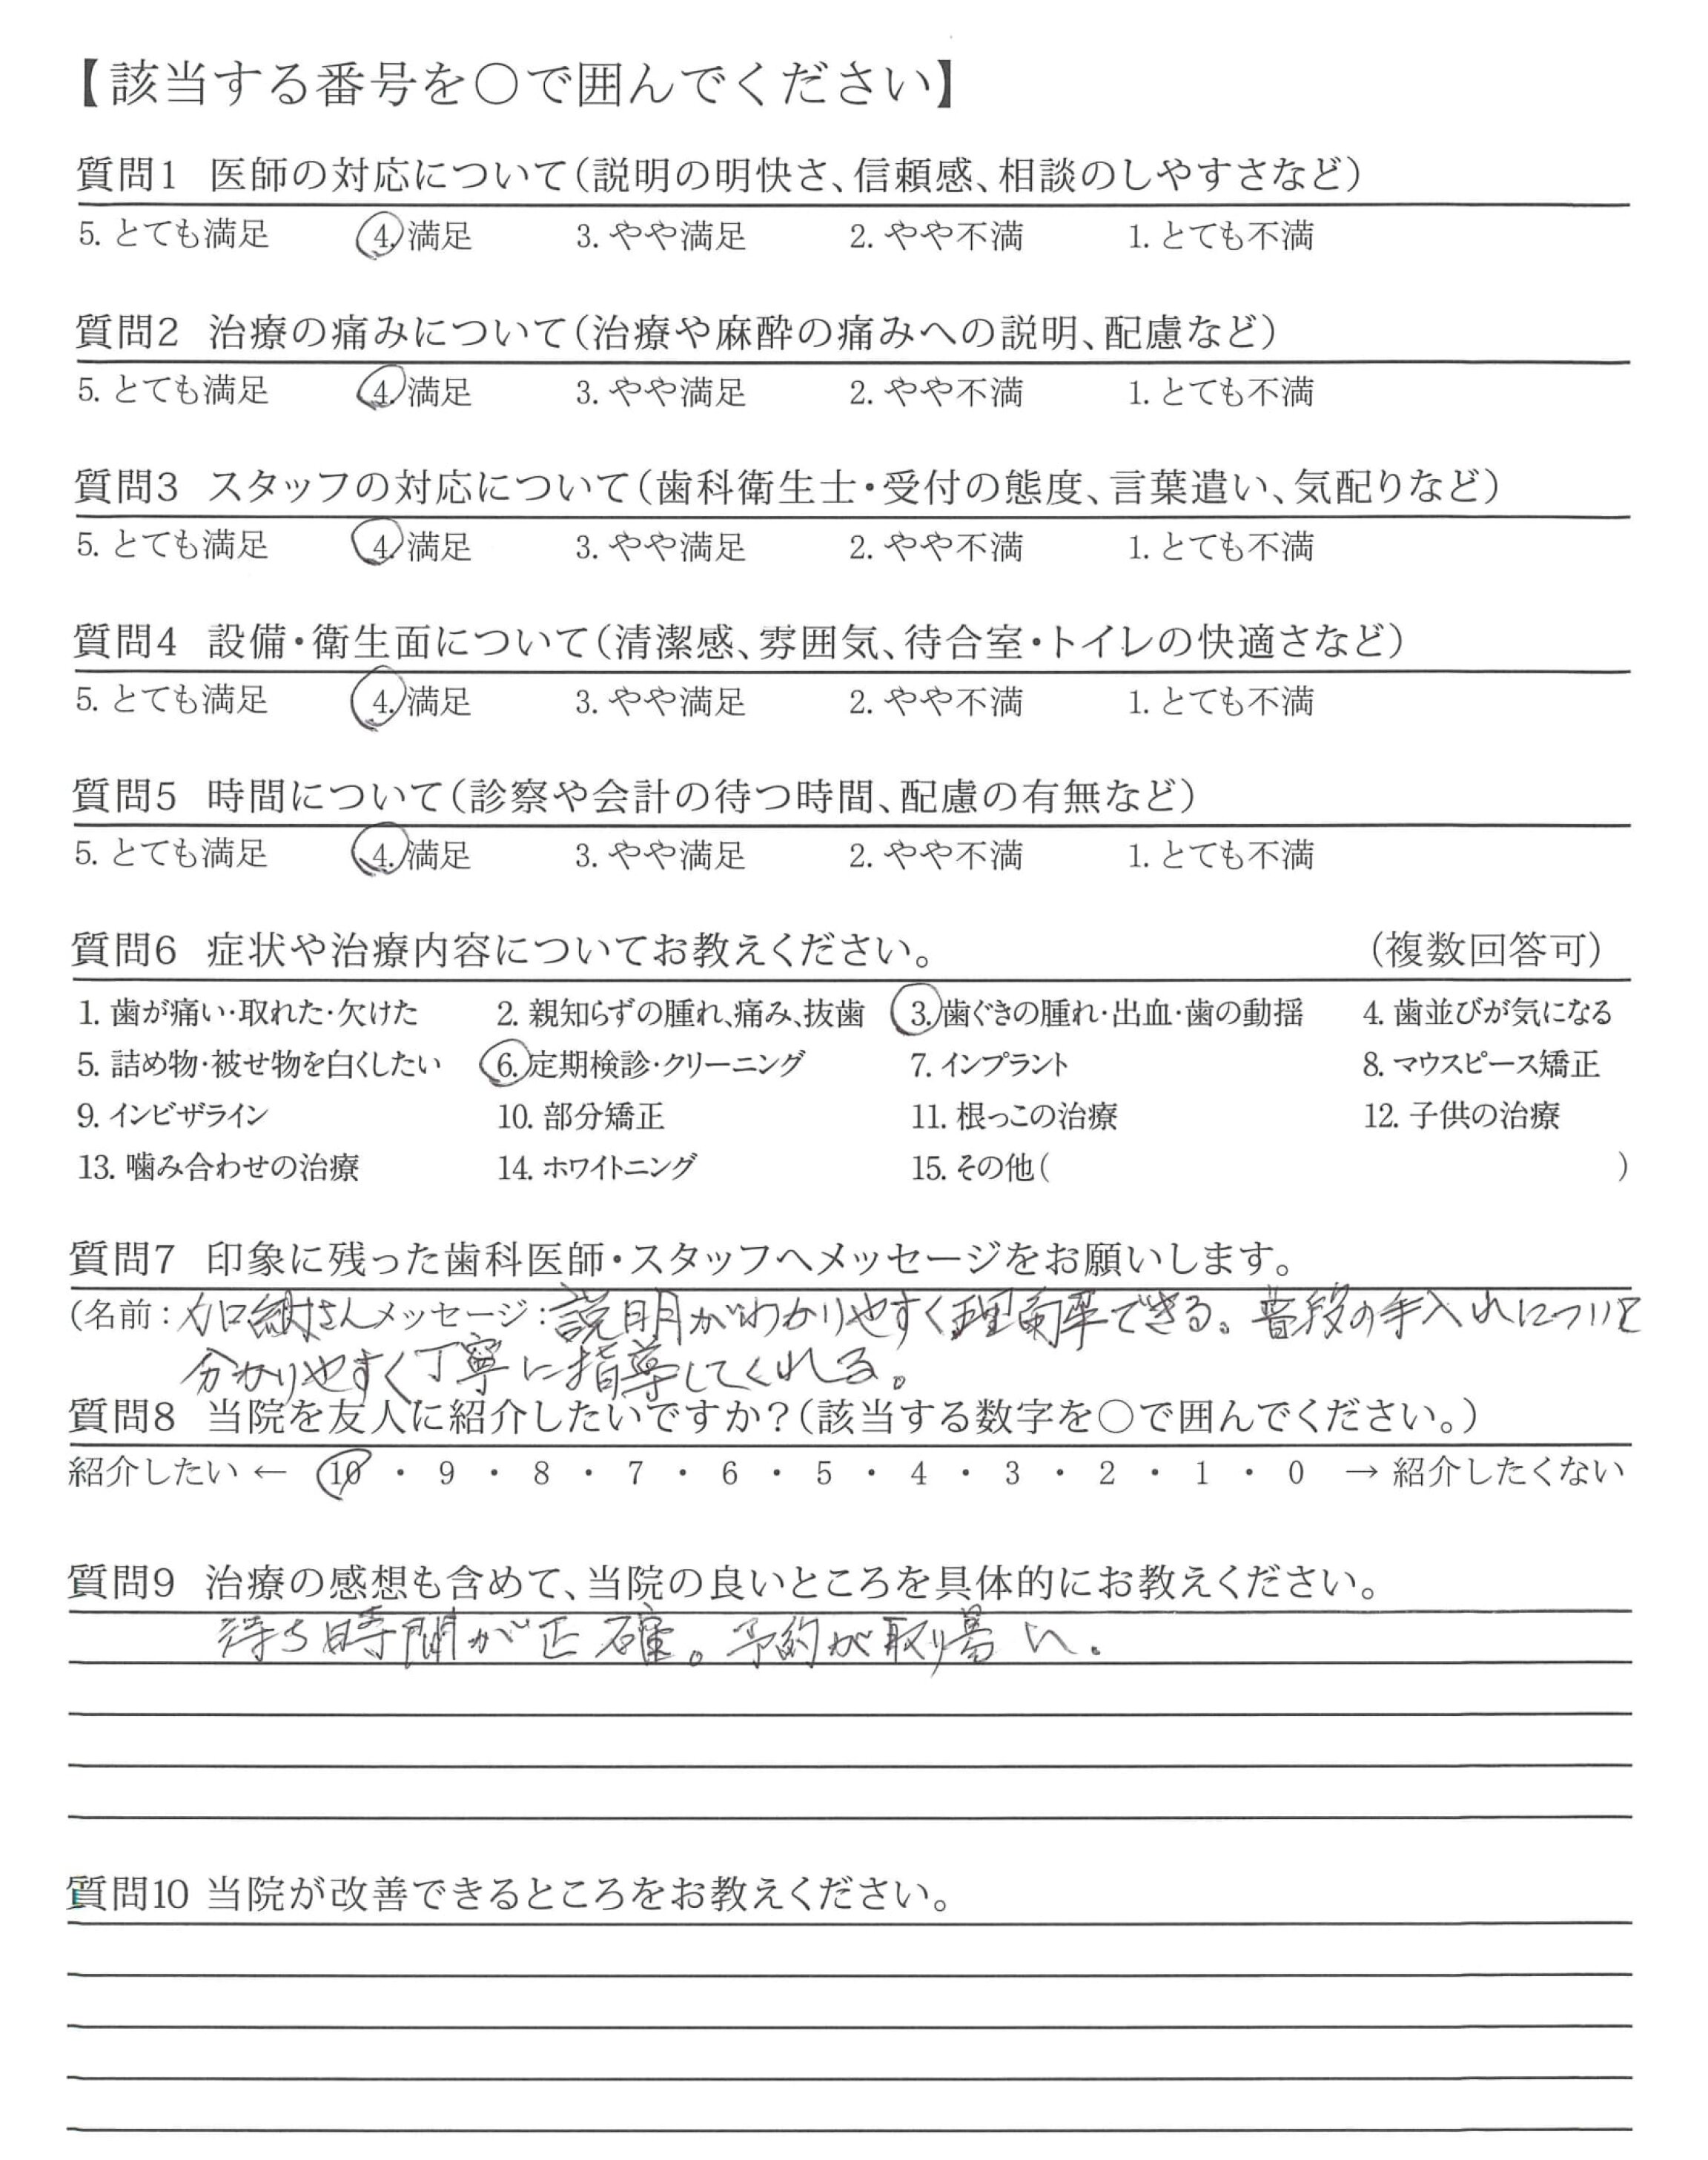 【該当する番号を○で囲んでください】
質問1 医師の対応について(説明の明快さ、信頼感、相談のしやすさなど)
5. とても満足 4. 満足 3. やや満足 2. やや不満 1. とても不満
質問2 治療の痛みについて(治療や麻酔の痛みへの説明、配慮など)
5. とても満足 4. 満足 3. やや満足 2. やや不満 1. とても不満
質問3 スタッフの対応について(歯科衛生士・受付の態度、言葉遣い、気配りなど)
5. とても満足 4. 満足 3. やや満足 2. やや不満 1. とても不満
質問4 設備・衛生面について(清潔感、雰囲気、待合室・トイレの快適さなど)
5. とても満足 4. 満足 3. やや満足 2. やや不満 1. とても不満
質問5 時間について(診察や会計の待つ時間、配慮の有無など)
5. とても満足 4. 満足 3. やや満足 2. やや不満 1. とても不満
質問6 症状や治療内容についてお教えください。 (複数回答可)
1. 歯が痛い・取れた・欠けた 2. 親知らずの腫れ、痛み、抜歯 3. 歯ぐきの腫れ・出血・歯の動揺 4. 歯並びが気になる
5. 詰め物・被せ物を白くしたい 6. 定期検診・クリーニング 7. インプラント 8. マウスピース矯正
9. インビザライン 10. 部分矯正 11. 根っこの治療 12. 子供の治療
13. 噛み合わせの治療 14. ホワイトニング 15. その他( )
質問7 印象に残った歯科医師・スタッフへメッセージをお願いします。
(名前：加納さん メッセージ：説明がわかりやすく理解できる。普段の手入れについて
分かりやすく丁寧に指導してくれる。
質問8 当院を友人に紹介したいですか?(該当する数字を○で囲んでください。)
紹介したい ← 10 ・ 9 ・ 8 ・ 7 ・ 6 ・ 5 ・ 4 ・ 3 ・ 2 ・ 1 ・ 0 → 紹介したくない
質問9 治療の感想も含めて、当院の良いところを具体的にお教えください。
待ち時間が正確。予約が取り易い。
質問10 当院が改善できるところをお教えください。